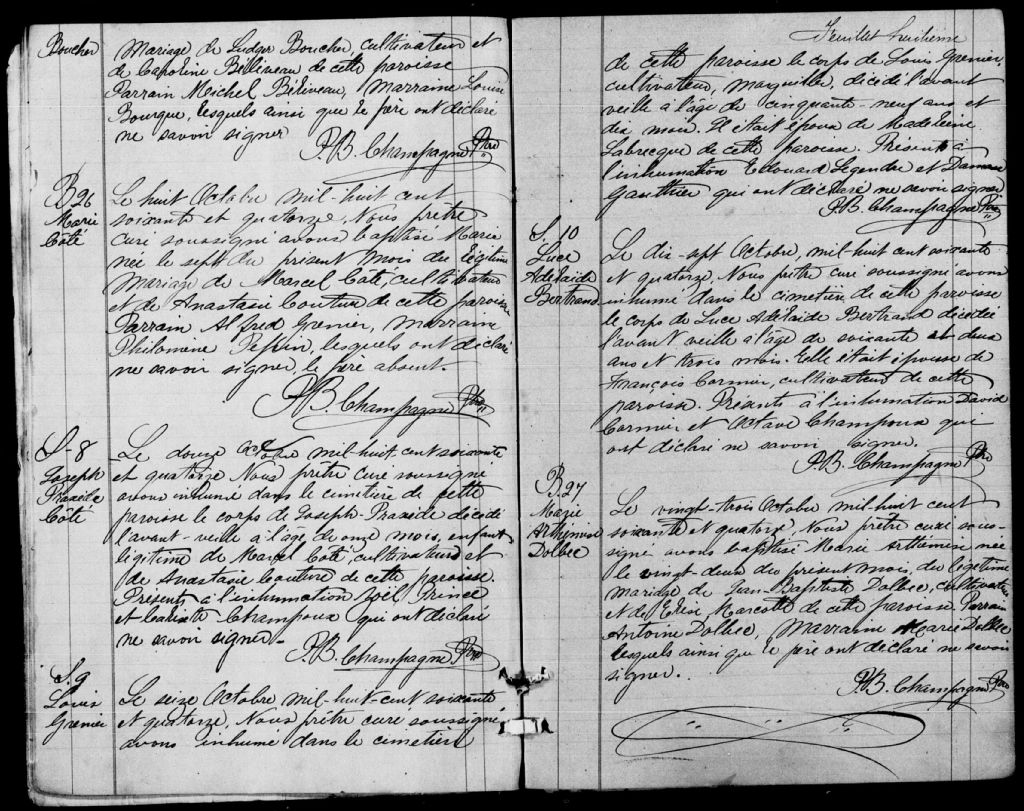 Boucher
Mariage de Ludger Boucher, cultivateur et
de Caroline Béliveau de cette paroisse
Parrain Michel Béliveau, Marraine Louise
Bourque, lesquels ainsi que le père ont déclaré
ne savoir signer
P.B. Champagne Ptre
B 26
Marie
Côté
Le huit Octobre mil-huit cent
soixante et quatorze, Nous prêtre
curé soussigné avons baptisé Marie
née le sept du présent mois du légitime
Mariage de Marcel Coté, cultivateur
et de Anastasie Couture de cette paroisse
Parrain Alfred Grenier, Marraine
Philomine Pepin, lesquels ont déclaré
ne savoir signer, le père absent.
P.B. Champagne Ptre
S-8
Joseph
Praxède
Côté
Le douze Octobre mil-huit cent soixante
et quatorze Nous prêtre curé soussigné
avons inhumé dans le cimetière de cette
paroisse le corps de Joseph-Praxède décédé
l'avant-veille à l'âge de onze mois, enfant
légitime de Marcel Coté, cultivateur et
de Anastasie Couture de cette paroisse.
Présents à l'inhumation Joël Prince
et Calixte Champoux qui ont déclaré
ne savoir signer-
P.B. Champagne Ptre
S.9
Louis
Grenier
Le seize Octobre mil-huit-cent soixante
et quatorze, Nous prêtre curé soussigné
avons inhumé dans le cimetière
Feuillet huitième
de cette paroisse le corps de Louis Grenier,
cultivateur, marguiller, décédé l'avant
veille à l'âge de cinquante-neuf ans et
dix mois. Il était époux de Madeleine
Labrecque de cette paroisse. Présents à
l'inhumation Edouard Legendre et Damase
Gauthier qui ont déclaré ne savoir signer
P.B. Champagne Ptre
S. 10
Luce
Adélaide
Bertrand
Le dix-sept Octobre, mil-huit cent soixante
et quatorze, Nous prêtre curé soussigné avons
inhumé dans le cimetière de cette paroisse
le corps de Luce Adélaide Bertrand décédée
l'avant veille à l'âge de soixante et deux
ans et trois mois. Elle était épouse de
François Cormier, cultivateur de cette
paroisse. Présents à l'inhumation David
Cormier et Octave Champoux que
ont déclaré ne savoir signer.
P.B. Champagne Ptre
B.27
Marie
Arthémise
Dolbec
Le vingt-trois Octobre mil-huit cent
soixante et quatorze Nous prêtre curé sous-
signé avons baptisé Marie Arthémise née
le vingt-deux du présent mois, du légitime
mariage de Jean-Baptiste Dolbec, cultivateur
et de Elise Marcotte de cette paroisse Parrain
Antoine Dolbec, Marraine Marie Dolbec
lesquels ainsi que le père ont déclaré ne savoir
signer.
P.B. Champagne Ptre